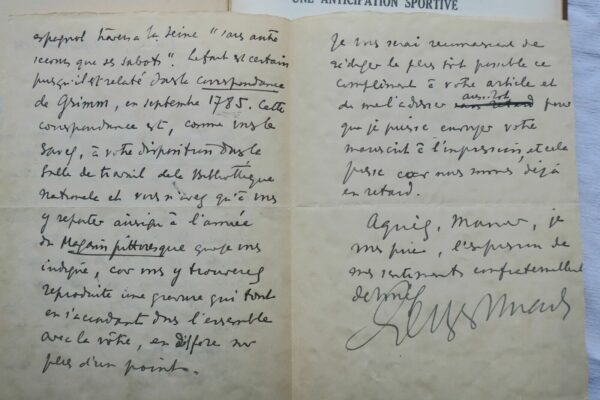 UNE ANTICIPATION SPORTIVE
espagnol traversa la Seine "sans autre
secours que ses sabots". Le fait est certain
puisqu'il est relaté dans la correspondance
de Grimm, en septembre 1785. Cette
correspondance est, comme vous le
savez, à votre disposition dans la
salle de travail de la Bibliothèque
Nationale et vous n'avez qu'à vous
y reporter ainsi qu'à l'année
du Magasin pittoresque que je vous
indique, car vous y trouverez
reproduite une gravure qui tout
en s'accordant dans l'ensemble
avec la vôtre, en diffère sur
plus d'un point.
Je vous serai reconnaissant de
rédiger le plus tôt possible ce
complément à votre article et
de me l'adresser aussitôt sans retard pour
que je puisse envoyer votre
manuscrit à l'impression et cela
presse car nous sommes déjà
en retard.
Agréez, Monsieur, je
vous prie, l'expression de
mes sentiments confraternellement
dévoués